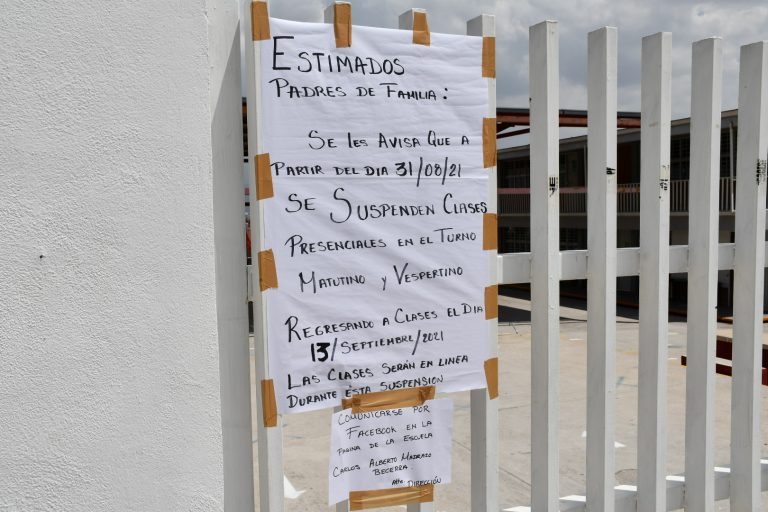 ESTIMADOS
PADRES DE FAMILIA:
SE LES AVISA QUE A
PARTIR DEL DIA 31/08/21
SE SUSPENDEN CLASES
PRESENCIALES EN EL TURNO
MATUTINO y VESPERTINO
REGRESANDO A CLASES EL DIA
13/SEPTIEMBRE/2021
LAS CLASES SERÁN EN LINEA
DURANTE ÉSTA SUSPENSION
COMUNICARSE POR
FACEBOOK EN LA
PAGINA DE LA ESCUELA
CARLOS ALBERTO MADRAZO
BECERRA.
Atte. DIRECCIÓN